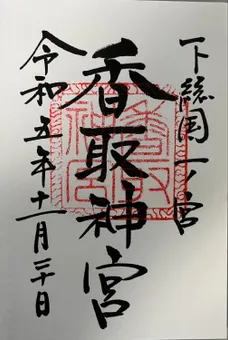 下総国一ノ宮
香取神宮
令和五年十一月三十日